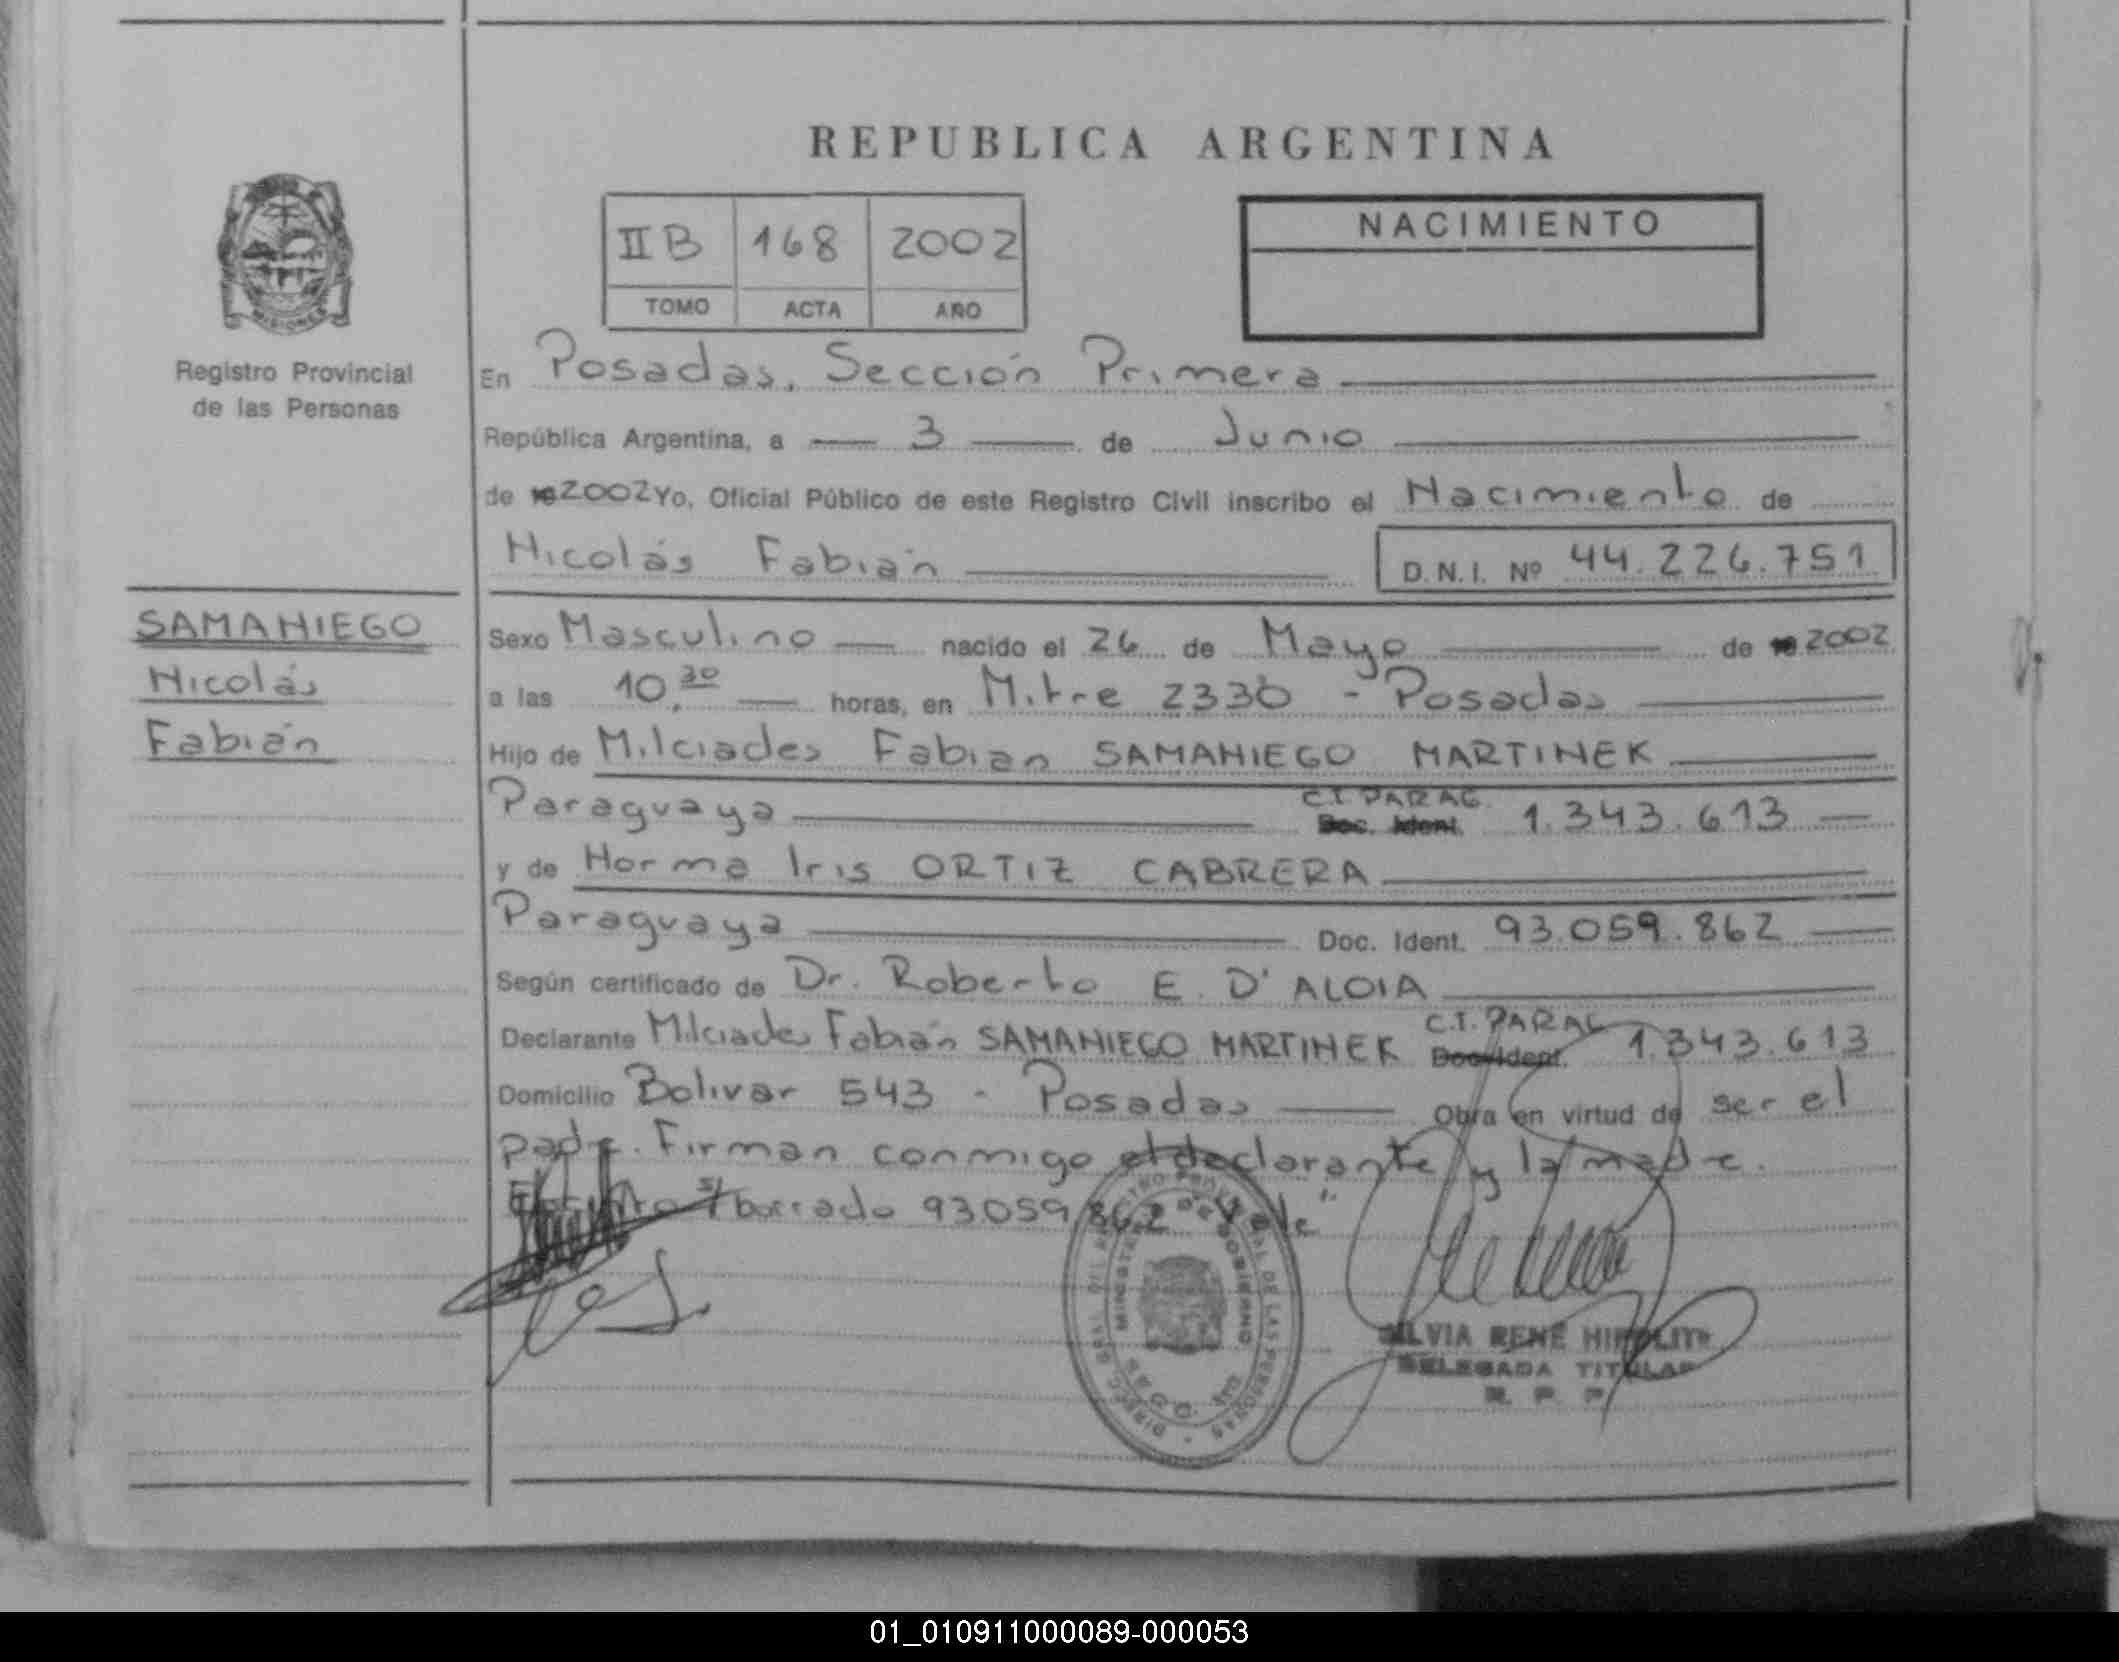 REPUBLICA ARGENTINA
IIB 168 2002
TOMO ACTA AÑO
NACIMIENTO
MISIONES
Registro Provincial
de las Personas
En Posadas, Sección Primera
República Argentina, a 3 de Junio
de 2002 Yo, Oficial Público de este Registro Civil inscribo el Nacimiento de
Nicolás Fabián D.N.I. Nº 44.226.751
SAMANIEGO
Nicolás
Fabián
Sexo Masculino nacido el 26 de Mayo de 2002
a las 10,30 horas, en Mitre 2330 - Posadas
Hijo de Milciades Fabian SAMANIEGO MARTINEK
Paraguaya C.I. PARAG. Doc. Ident. 1.343.613
y de Norma Iris ORTIZ CABRERA
Paraguaya Doc. Ident. 93.059.862
Según certificado de Dr. Roberto E. D'ALOIA
Declarante Milciades Fabián SAMANIEGO MARTINEK C.I. PARAG Doc. Ident. 1.343.613
Domicilio Bolivar 543 - Posadas Obra en virtud de ser el
padre. Firman conmigo el declarante y la madre.
s/ borrado 93059862 "Vale"
DIREC. GRAL. DEL REGISTRO PROVINCIAL DE LAS PERSONAS
MINISTERIO DE GOBIERNO
SILVIA RENÉ HIPOLITO
DELEGADA TITULAR
R. P. P.
01_010911000089-000053